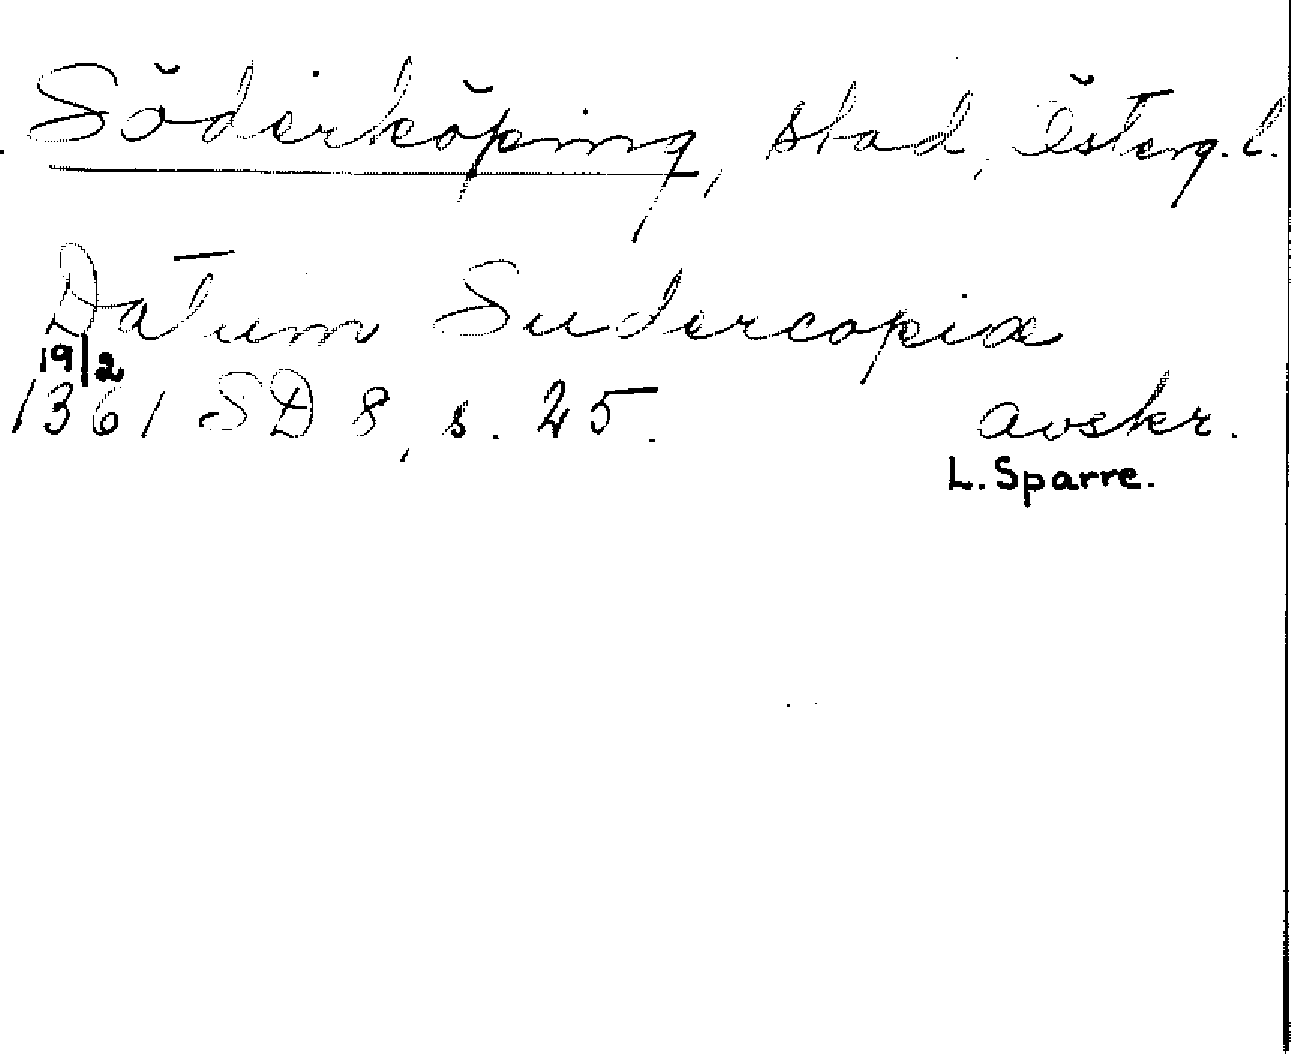 Söderköping, stad, Österg. l.
Datum Sudercopiæ
19/2
1361 SD 8, s. 45. avskr.
L. Sparre.